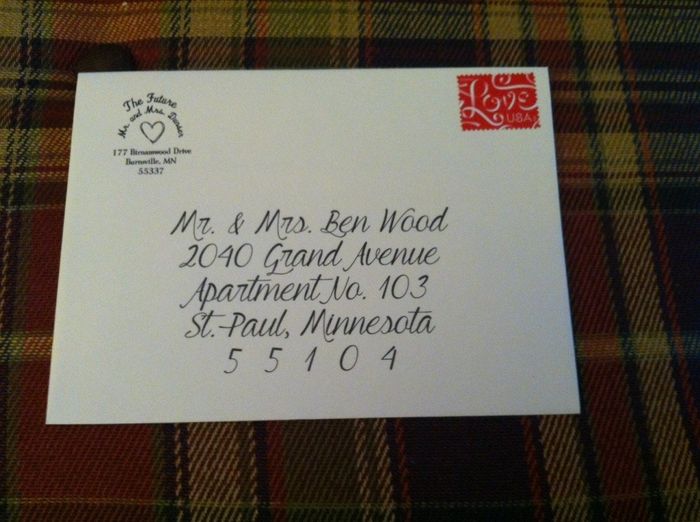 The Future
Mr. and Mrs. Dunker
177 Birnamwood Drive
Burnsville, MN
55337
Love
USA
Mr. & Mrs. Ben Wood
2040 Grand Avenue
Apartment No. 103
St. Paul, Minnesota
5 5 1 0 4